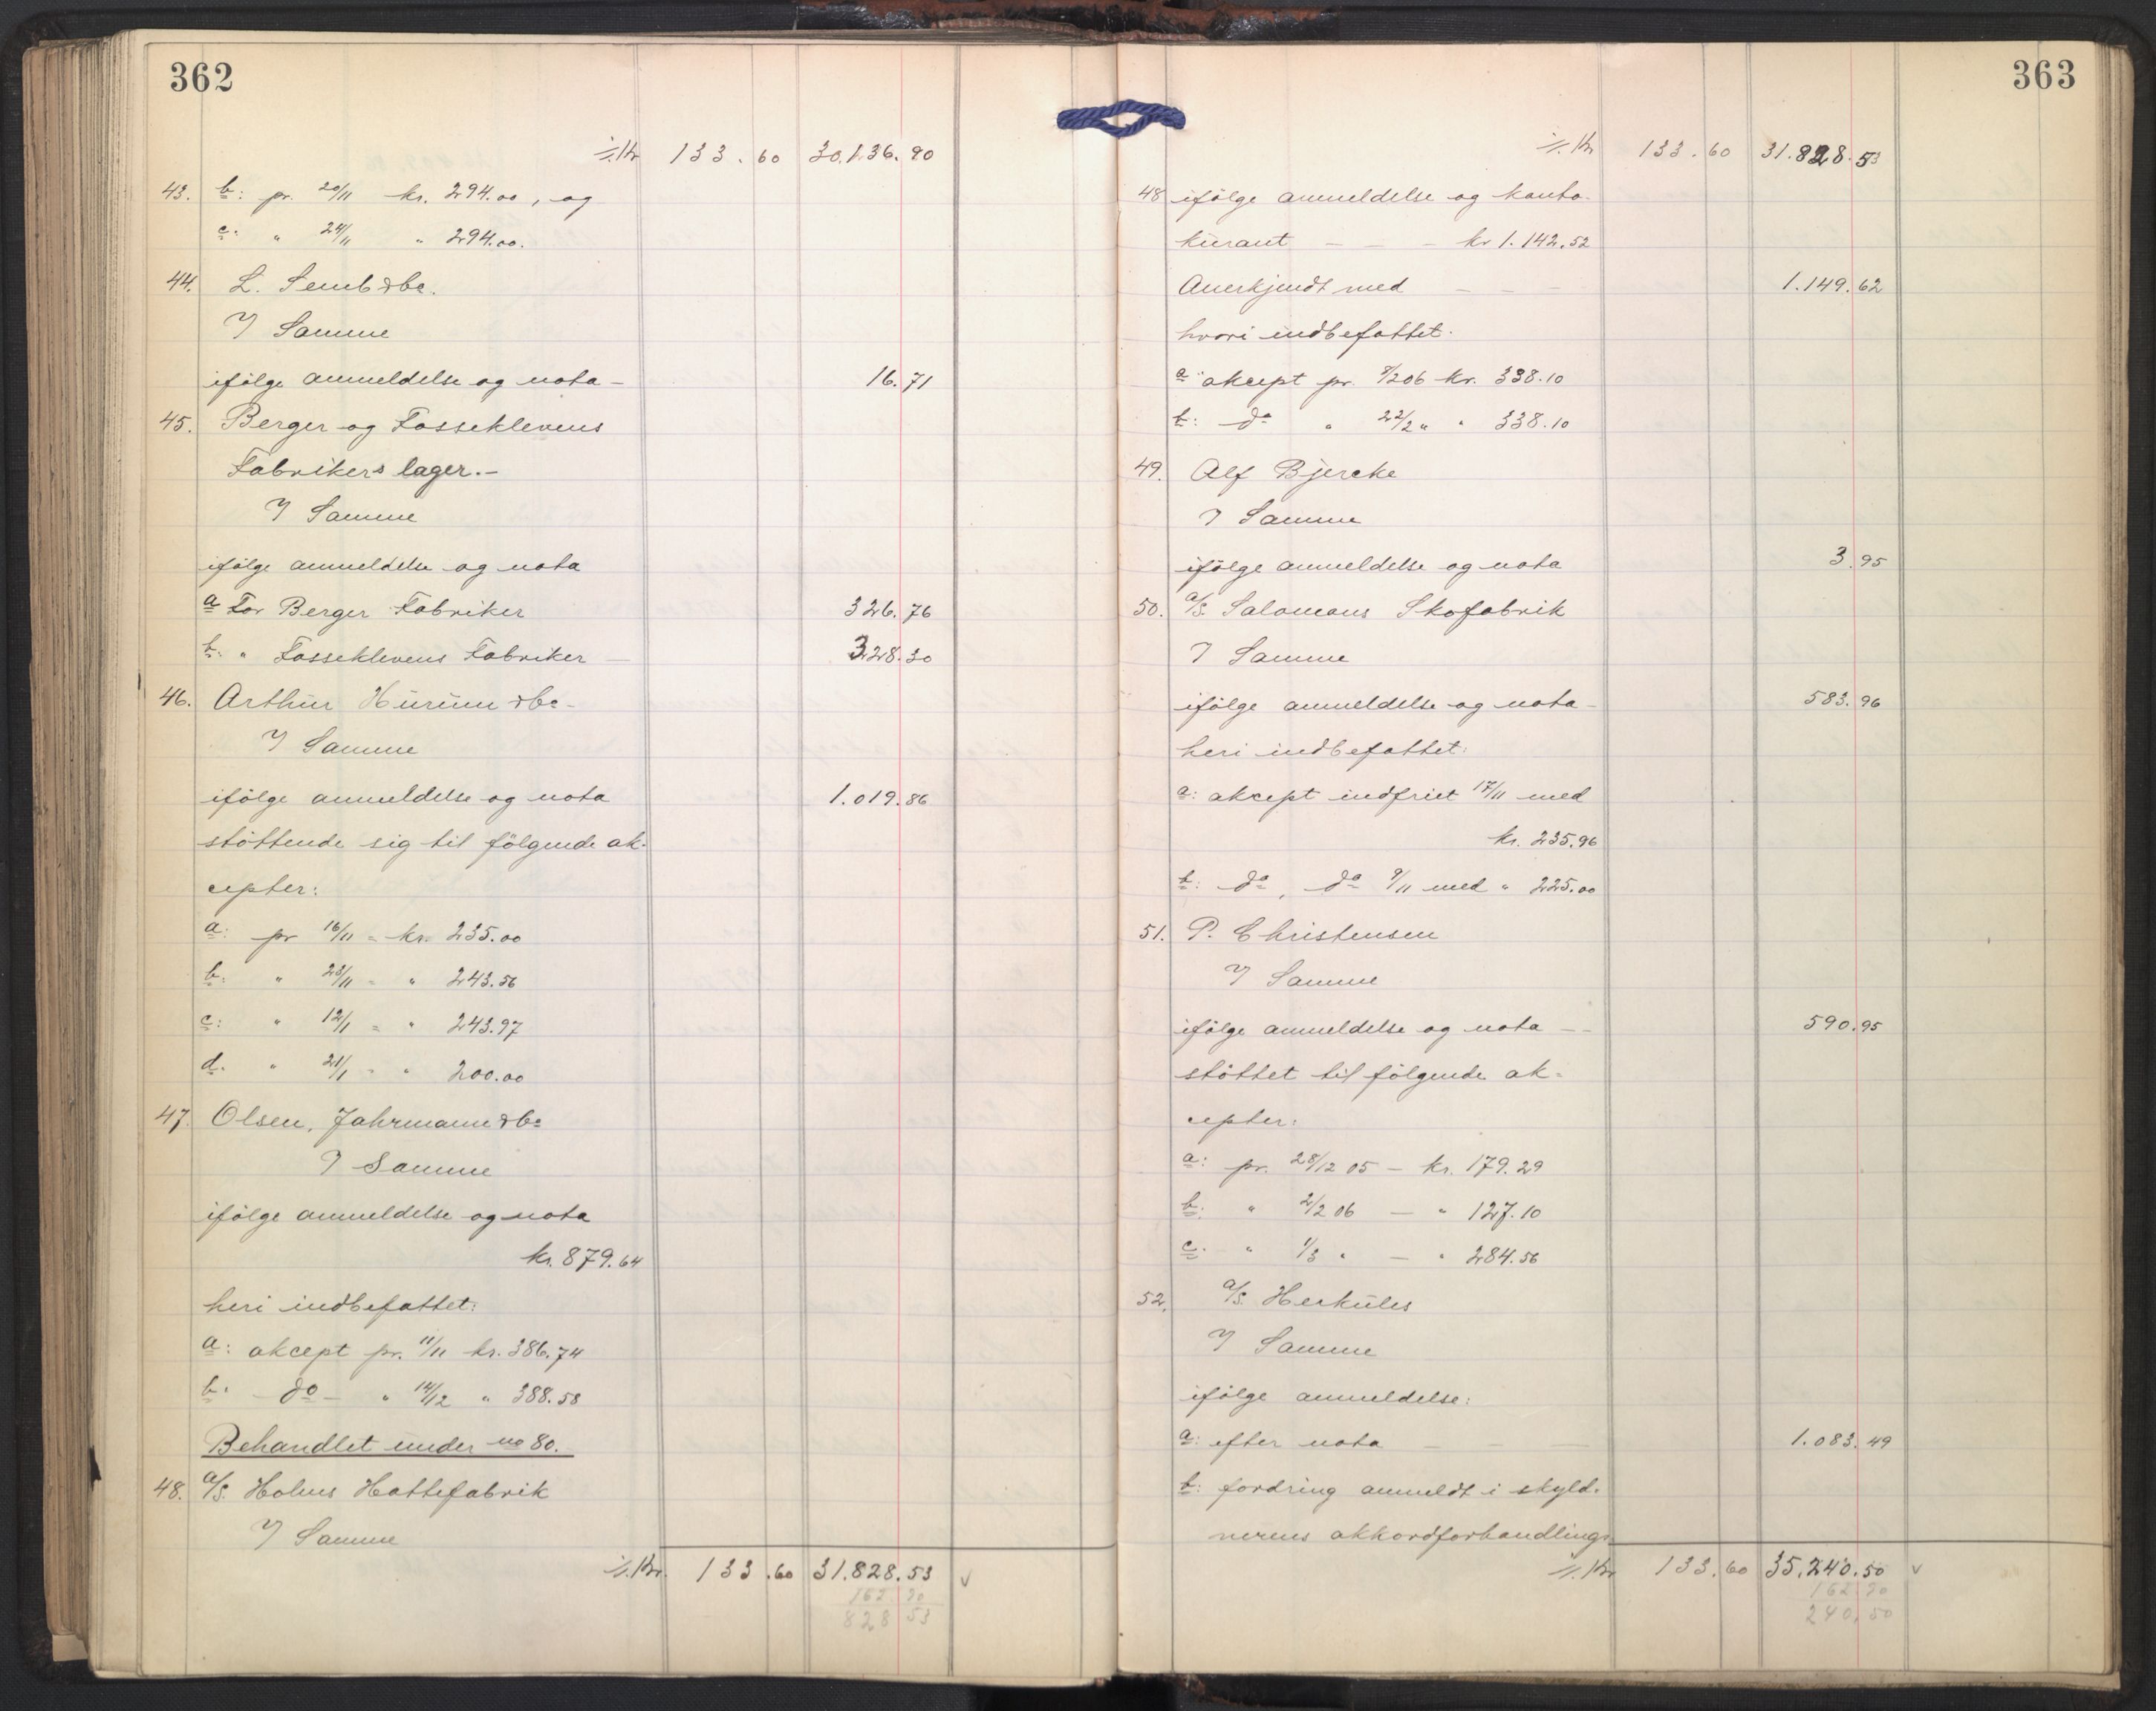 362
÷ Kr 133.60 30.136.90
43. b: pr. 20/11 kr. 294.00, og
c: " 24/11 " 294.00.
44. L. Semb & Co.
I Samme
ifölge anmeldelse og nota - 16.71
45. Berger og Fosseklevens
Fabrikers lager.-
I Samme
ifölge anmeldelse og nota
a For Berger Fabriker 326.76
b: " Fosseklevens Fabriker - 328.30
46. Arthur Hurum & Co -
I Samme
ifölge anmeldelse og nota 1.019.86
stöttende sig til fölgende ak-
cepter:
a: pr 16/11 = kr. 235.00
b: " 23/11 = " 243.56
c: " 12/1 = " 243.97
d. " 21/1 = " 200.00
47. Olsen, Jahrmann & Co
I Samme
ifölge anmeldelse og nota
kr. 879.64
heri indbefattet:
a: akcept pr. 11/11 kr. 386.74
b: - do - " 14/12 " 388.58
Behandlet under no 80.
48. A/S. Holms Hattefabrik
I Samme
÷ Kr. 133.60 31.828.53 v
162 30
828 53
363
÷ Kr 133.60 31.828.53
48 ifölge anmeldelse og konto-
kurant - - - kr 1.142.52
Anerkjendt med - - - 1.149.62
hvori indbefattet.
a: akcept pr. 9/2 06 kr. 338.10
b: do " 22/2 " " 338.10
49. Alf Bjercke
I Samme
ifölge anmeldelse og nota 3.95
50. A/S. Salomons Skofabrik
I Samme
ifölge anmeldelse og nota - 583.96
heri indbefattet:
a: akcept indfriet 17/11 med
kr. 235.96
b: do, do 9/11 med " 225.00
51. P. Christensen
I Samme
ifölge anmeldelse og nota - - 590.95
stöttet til fölgende ak-
cepter:
a: pr. 28/12 05 - kr. 179.29
b: " 2/2 06 - " 127.10
c. " 1/3 " - " 284.56
52. A/S. Herkules
I Samme
ifölge anmeldelse:
a: efter nota - - - 1.083.49
b: fordring anmeldt i skyld-
nerens akkordforhandlings-
÷ Kr 133.60 35.240.50 v
162 30
240,50